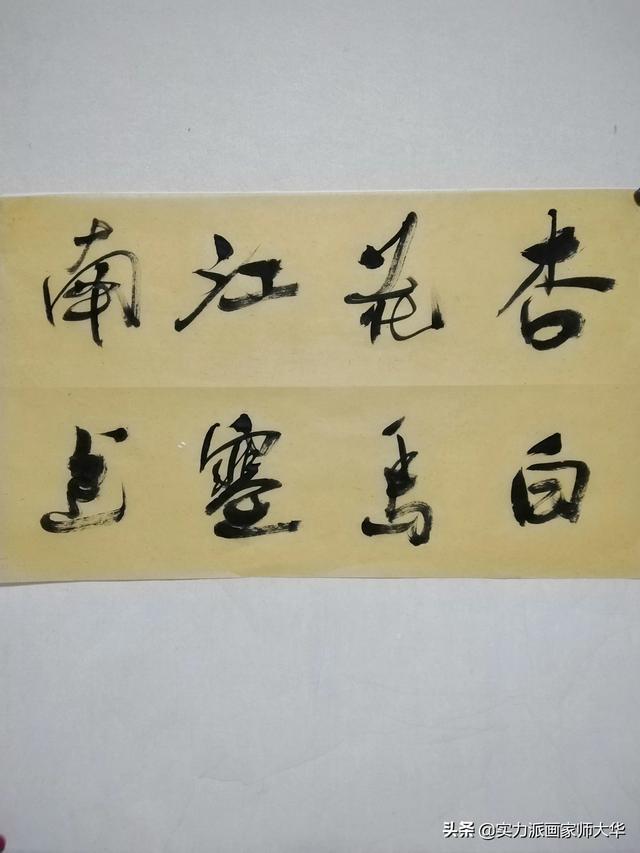 杏花江南
白馬塞邊
头条 @实力派画家师大华